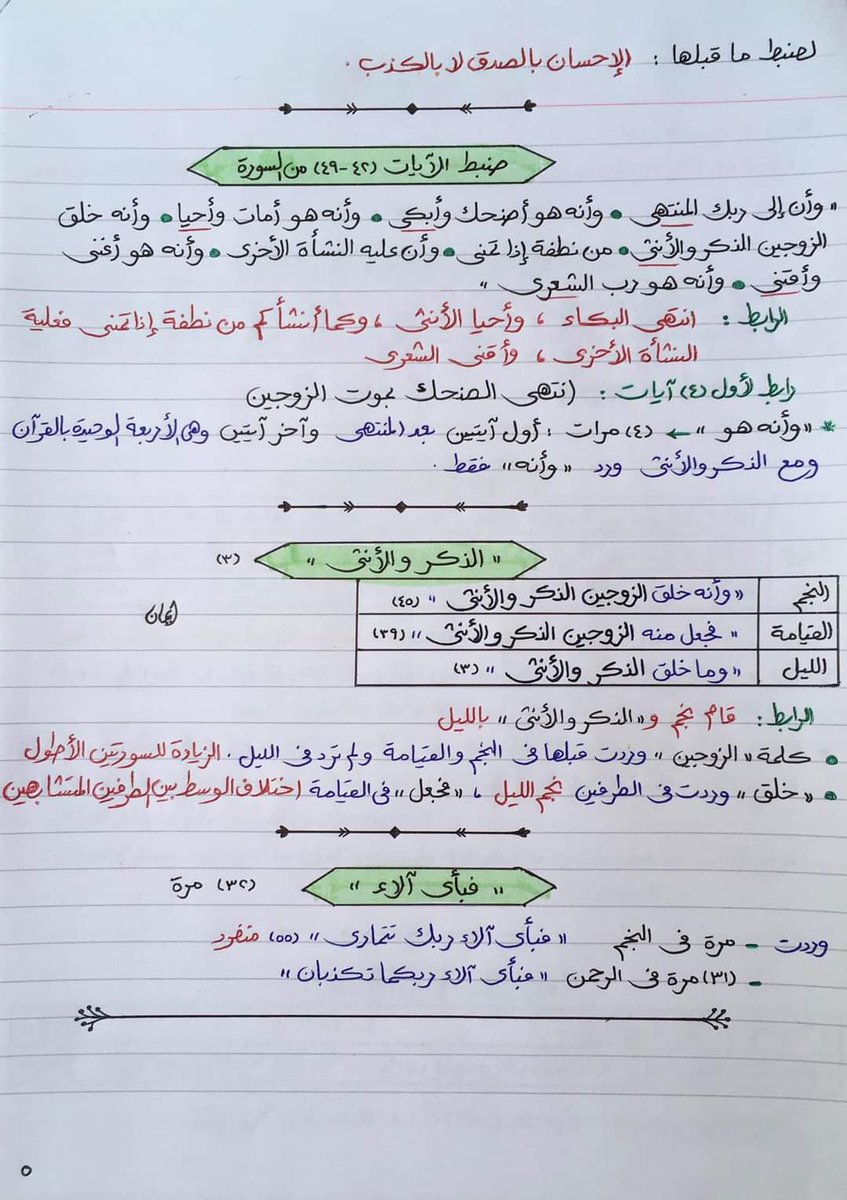 لضبط ما قبلها : الإحسان بالصدق لا بالكذب .
ضبط الآيات (٤٢-٤٩) من السورة
" وأن إلى ربك المنتهى • وأنه هو أضحك وأبكى • وأنه هو أمات وأحيا • وأنه خلق
الزوجين الذكر والأنثى • من نطفة إذا تمنى • وأن عليه النشأة الأخرى • وأنه هو أغنى
وأقنى • وأنه هو رب الشعرى "
الرابط : انتهى البكاء ، وأحيا الأنثى ، وكما أنشأكم من نطفة إذا تمنى فعليه
النشأة الأخرى ، وأقنى الشعرى
رابط لأول (٤) آيات : (انتهى الضحك بموت الزوجين
* "وأنه هو " ← (٤) مرات : أول آيتين بعد المنتهى وآخر آيتين وهي الأربعة الوحيدة بالقرآن
ومع الذكر والأنثى ورد "وأنه" فقط .
" الذكر والأنثى " (٣)
النجم "وأنه خلق الزوجين الذكر والأنثى " (٤٥)
القيامة " فجعل منه الزوجين الذكر والأنثى " (٣٩)
الليل "وما خلق الذكر والأنثى " (٣)
إيمان
الرابط : قام نجم و "الذكر والأنثى " بالليل
• كلمة " الزوجين " وردت قبلها في النجم والقيامة ولم ترد في الليل . الزيادة للسورتين الأطول
• "خلق " وردت في الطرفين نجم الليل ، "فجعل" في القيامة (اختلاف الوسط بين الطرفين المتشابهين
" فبأى آلاء " (٣٢) مرة
وردت - مرة في النجم "فبأى آلاء ربك تتمارى " (٥٥) منفرد
- (٣١) مرة في الرحمن "فبأى آلاء ربكما تكذبان "
٥